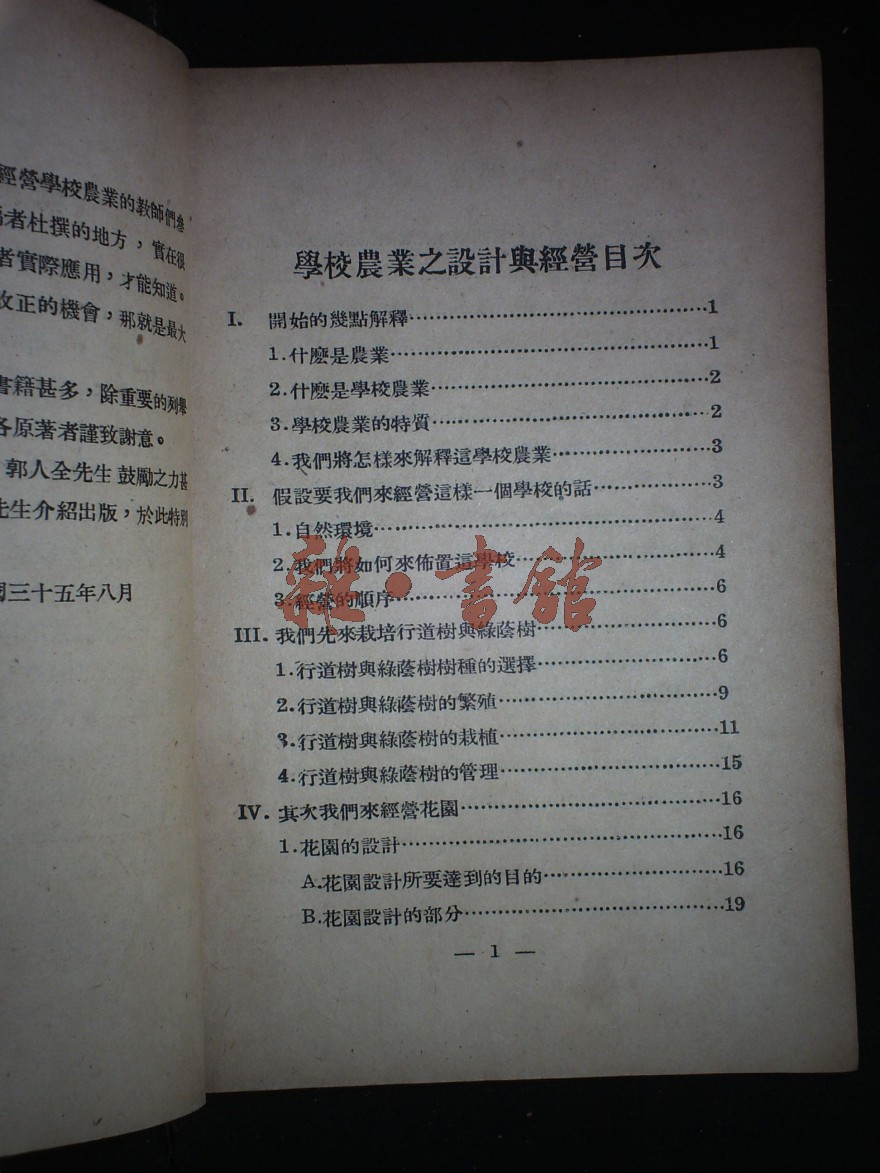 經營學校農業的教師們參
者杜撰的地方，實在很
者實際應用，才能知道。
改正的機會，那就是最大
書籍甚多，除重要的列舉
各原著者謹致謝意。
郭人全先生鼓勵之力甚
先生介紹出版，於此特別
國三十五年八月
學校農業之設計與經營目次
I. 開始的幾點解釋……1
1.什麼是農業……1
2.什麼是學校農業……2
3.學校農業的特質……2
4.我們將怎樣來解釋這學校農業……3
II. 假設要我們來經營這樣一個學校的話……3
1.自然環境……4
2.我們將如何來佈置這學校……4
3.經營的順序……6
III. 我們先來栽培行道樹與綠蔭樹……6
1.行道樹與綠蔭樹樹種的選擇……6
2.行道樹與綠蔭樹的繁殖……9
3.行道樹與綠蔭樹的栽植……11
4.行道樹與綠蔭樹的管理……15
IV. 其次我們來經營花園……16
1.花園的設計……16
A.花園設計所要達到的目的……16
B.花園設計的部分……19
— 1 —
雜·書館